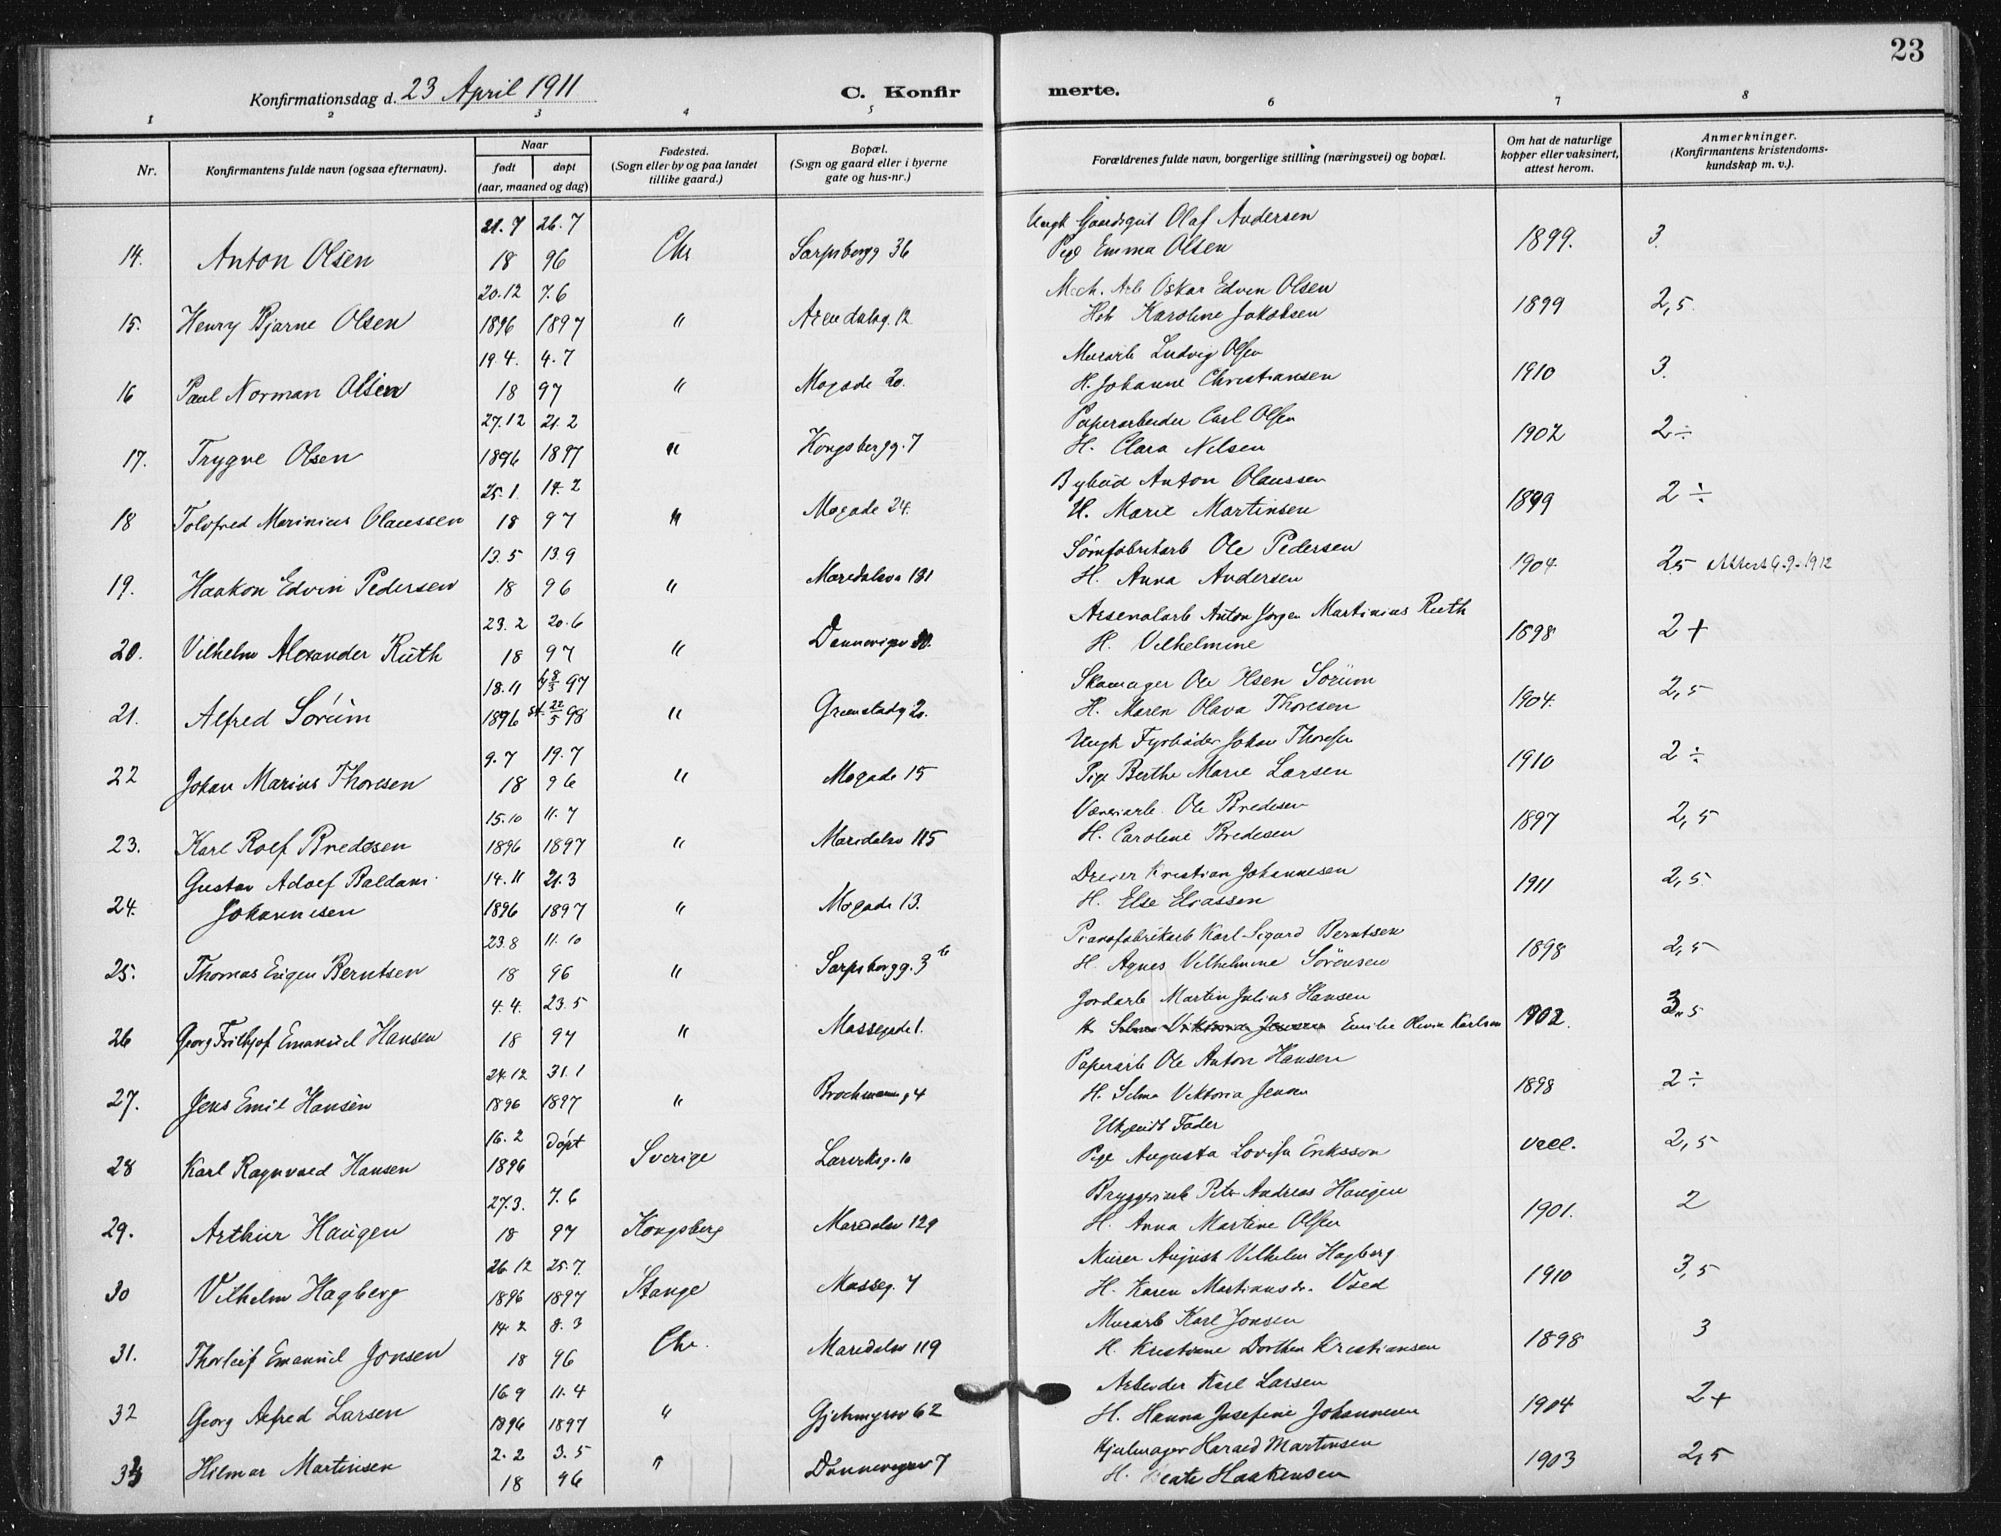 23
Konfirmationsdag d. 23 April 1911 C. Konfir merte.
1 2 3 4 5 6 7 8
Nr. Konfirmantens fulde navn (ogsaa efternavn). Naar født døpt (aar, maaned og dag) Fødested. (Sogn eller by og paa landet tillike gaard.) Bopæl. (Sogn og gaard eller i byerne gate og hus-nr.) Forældrenes fulde navn, borgerlige stilling (næringsvei) og bopæl. Om hat de naturlige kopper eller vaksinert, attest herom. Anmerkninger. (Konfirmantens kristendomskundskap m. v.).
21.7 26.7 Ungk Gaardsgut Olaf Andersen
14. Anton Olsen 18 96 Chr Sarpsborgg 36 Pige Emma Olsen 1899. 3.
20.12 7.6 Mech. Arb Oskar Edvin Olsen
15. Henry Bjarne Olsen 1896 1897 " Arendalsg. 12 Hst Karoline Jakobsen 1899 2,5.
19.4. 4.7 Murarb Ludvig Olsen
16 Paul Norman Olsen 18 97 " Mogade 20. H. Johanne Christiansen 1910 3.
27.12 21.2 Paperarbeider Carl Olsen
17. Trygve Olsen 1896 1897 " Kongsbergg. 7 H. Clara Nilsen 1902 2÷
25.1. 14.2 Bybud Anton Olaussen
18 Tolvfred Marinius Olaussen 18 97 " Mogade 24. H. Marie Martinsen 1899 2÷
13.5 13.9 Sömfabrikarb Ole Pedersen
19. Haakon Edvin Pedersen 18 96 " Maridalsv 181 H. Anna Andersen 1904 2,5 Attest 9-9-1912
23.2 20.6 Arsenalarb Anton Jørgen Martinius Ruth
20. Vilhelm Alexander Ruth 18 97 " Dannevigsv H. Vilhelmine 1898 2+
18.11 8/3 97 Skomager Ole Olsen Sørum
21. Alfred Sørum 1896 st. 22/5 98 " Grimstadg 20. H. Maren Olava Thoresen 1904. 2,5
9.7 19.7 Ungk Fyrbøder Johan Thoresen
22 Johan Marius Thoresen 18 96 " Mogade 15 Pige Berthe Marie Larsen 1910 2÷
15.10 11.7 Væveriarb. Ole Bredesen
23. Karl Rolf Bredesen 1896 1897 " Maridalsv 115 H. Caroline Bredesen 1897 2,5
Gustav Adolf Baldam 14.11 21.3 Dreier Kristian Johannesen
24. Johannesen 1896 1897 " Mogade 13. H. Else Eliassen 1911 2,5
23.8 11.10 Pianofabrikarb Karl Sigurd Berntsen
25. Thomas Eugen Berntsen 18 96 " Sarpsborgg. 3 b H. Agnes Vilhelmine Sørensen 1898 2,5
4.4. 23.5 Jordarb Martin Julius Hansen
26 Georg Fritjof Emanuel Hansen 18 97 " Mossegade 1. H Selma Viktoria Jensen Emilie Olevine Karlsen 1902. 3,5
24.12 31.1 Paperarb Ole Anton Hansen
27. Jens Emil Hansen 1896 1897 " Brochmannsg 4 H. Selma Viktoria Jensen 1898 2÷
16.2 døpt Ukjendt Fader
28 Karl Ragnvald Hansen 1896 Sverige Larviksg. 10 Pige Augusta Lovisa Eriksson vacc. 2,5
27.3. 7.6 Bryggeriarb Peter Andreas Haugen
29. Arthur Haugen 18 97 Kongsberg Maridalsv 129 H. Anna Martine Olsen 1901. 2
26.12 25.7 Murer August Vilhelm Hagberg
30 Vilhelm Hagberg 1896 1897 Stange Mosseg. 7 H. Karen Martiansdr. Vold 1910 3,5
14.2 8.3 Murarb Karl Jonsen
31. Thorleif Emanuel Jonsen 18 96 Chr. Maridalsv 119 H. Kristiane Dorthea Kristiansen 1898 3
16.9 11.4 Arbeider Karl Larsen
32 Georg Alfred Larsen 1896 1897 " Gjetmyrsv 62 H. Hanna Josefine Johannesen 1904 2+
2.2 3.5 Hjulmager Harald Martinsen
33 Hilmar Martinsen 18 96 " Dannevigsv 7 H. Beate Haakensen 1903 2,5